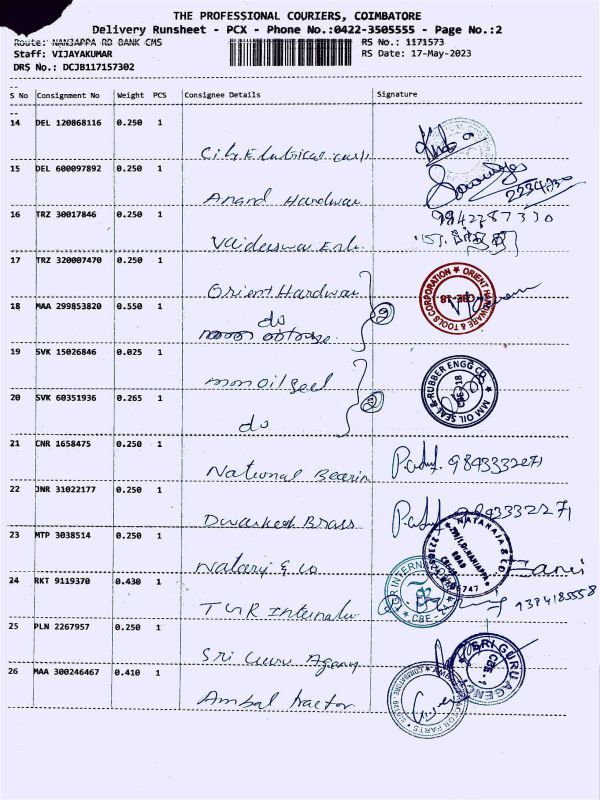 THE PROFESSIONAL COURIERS, COIMBATORE
Delivery Runsheet - PCX - Phone No.:0422-3505555 - Page No.:2
Route: NANJAPPA RD BANK CMS RS No.: 1171573
Staff: VIJAYAKUMAR RS Date: 17-May-2023
DRS No.: DCJB117157302
S No Consignment No Weight PCS Consignee Details Signature
14 DEL 120868116 0.250 1
City Electrical
15 DEL 600097892 0.250 1
Anand Hardwar
16 TRZ 30017846 0.250 1
9842287330
17 TRZ 320007470 0.250 1
Orient Hardwar
ORIENT HARDWARE & TOOLS CORPORATION CBE-18
18 MAA 299853820 0.550 1
do
19 SVK 15026846 0.025 1
mm oil seel
MM OIL SEAL & RUBBER ENGG CO CBE-18
20 SVK 60351936 0.265 1
do
21 CNR 1658475 0.250 1
National Bearin 9843332271
22 JNR 31022177 0.250 1
Dwarkesh Brass 9843332271
23 MTP 3038514 0.250 1
Nataraj & Co
NATARAJA & CO
24 RKT 9119370 0.430 1
TGR Internatio 9384185558
TGR INTERNATIONAL CBE
25 PLN 2267957 0.250 1
Sri Guru Agency
SRI GURU AGENCY CBE
26 MAA 300246467 0.410 1
Ambal tractor